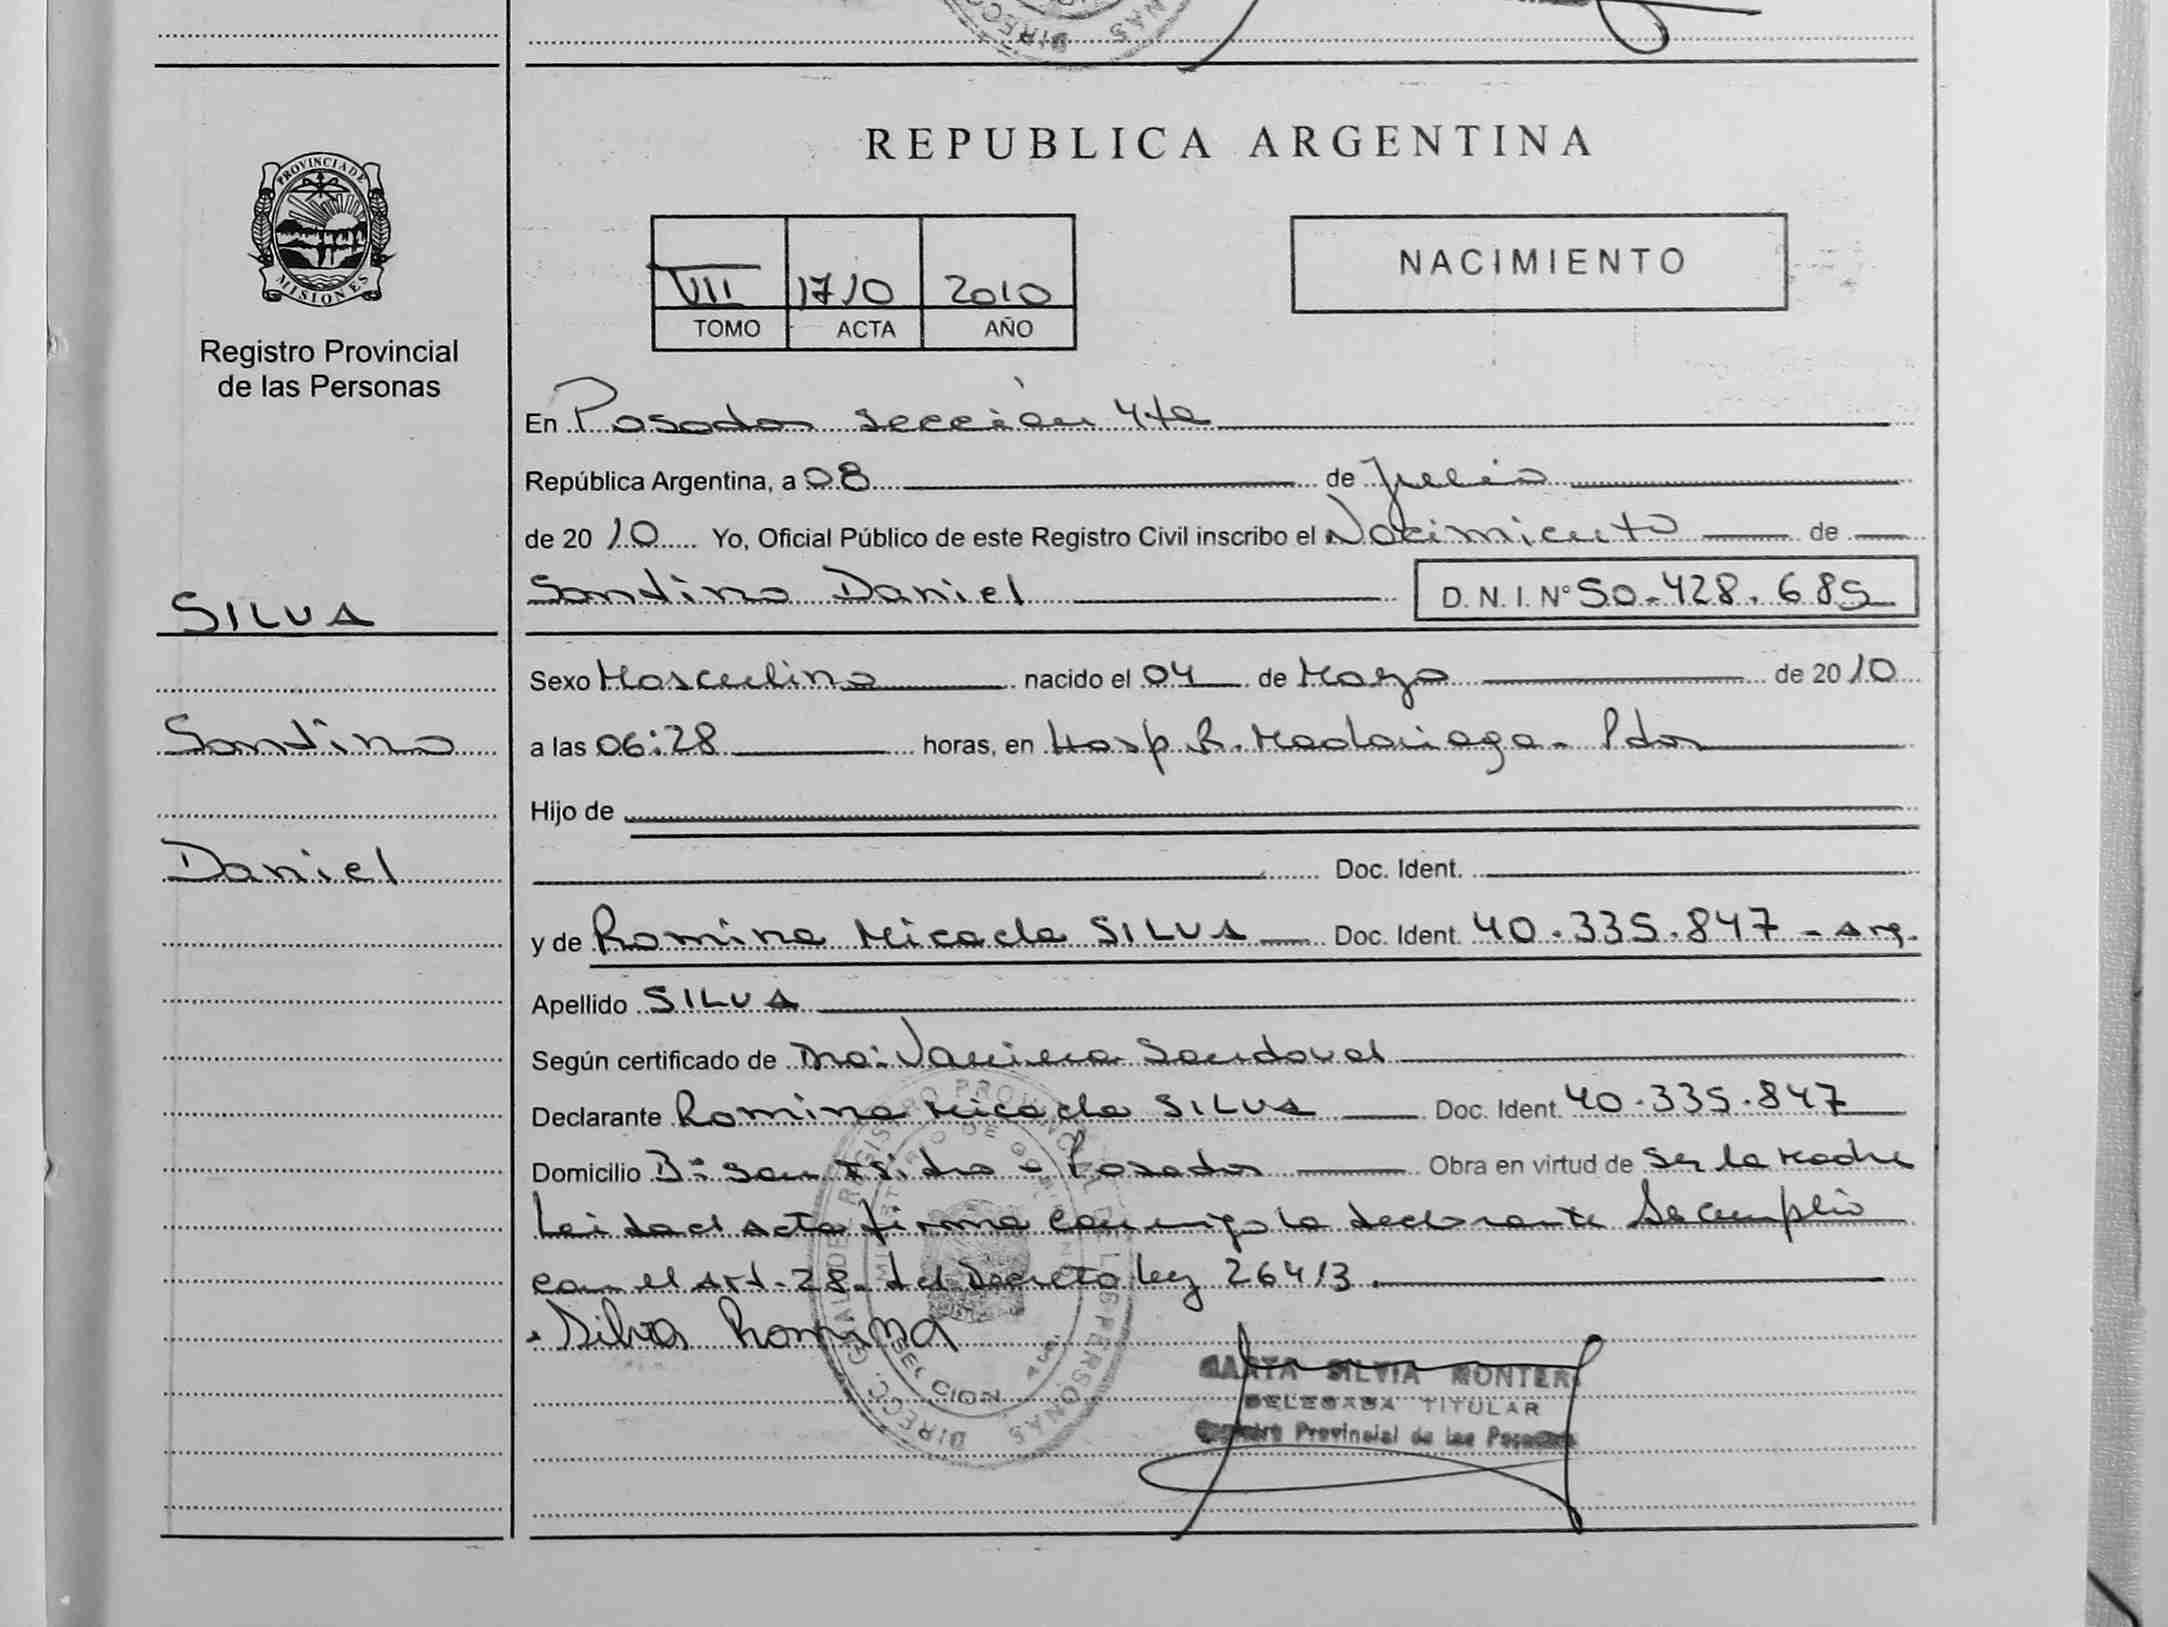 REPUBLICA ARGENTINA
PROVINCIA DE MISIONES
Registro Provincial
de las Personas
VII 1710 2010
TOMO ACTA AÑO
NACIMIENTO
En Posadas sección 4ta
República Argentina, a 08 de Julio
de 20 10 Yo, Oficial Público de este Registro Civil inscribo el Nacimiento de
Santino Daniel D. N. I. Nº 50.428.685
SILVA
Santino
Daniel
Sexo Masculino nacido el 04 de Mayo de 20 10
a las 06:28 horas, en Hosp R. Madariaga - Pdas
Hijo de
Doc. Ident.
y de Romina Micaela SILVA Doc. Ident. 40.335.847 - Arg.
Apellido SILVA
Según certificado de Dra: Sandoval
Declarante Romina Micaela SILVA Doc. Ident. 40.335.847
Domicilio Bº San Isidro - Posadas Obra en virtud de ser la Madre
Leida el Acta firma conmigo la declarante Se cumplió
con el Art. 28 del Decreto ley 26413.
Silva Romina
SILVIA MONTER
DELEGADA TITULAR
Registro Provincial de las Personas